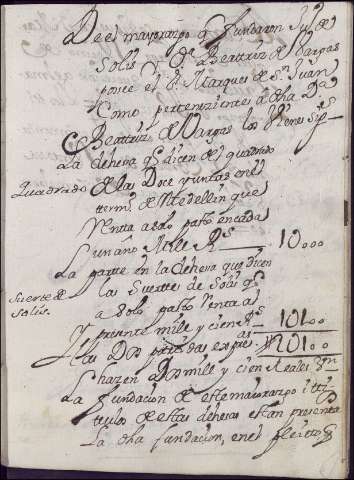 De el mayorazgo q fundaron Ju.º de
Solis y D.ª Beatriz de Vargas
posee el S.r Marques de S.n Juan
Como perteneziente a dha D.ª
Beatriz de Vargas los vienes sig.tes
La dehesa q dizen de el quadrado
Quadrado
de las Doce yuntas en el
term.º de Medellin que
Renta a solo pasto en cada
un año Mill R.s 10000
La parte en la dehesa que dicen
Suerte de
Solis.
las Suertes de Solis q
a solo pasto renta al
presente mill y cien R.s 10100
Y las dos partidas expresadas 20100
hazen Dos mill y cien Reales
La fundacion de este mayorazgo y ti
tulos de estas dehesas estan presenta
La dha fundacion, en el pleito